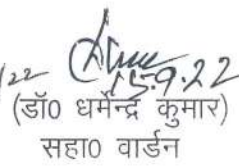 15.9.22
(डॉ0 धर्मेन्द्र कुमार)
सहा0 वार्डन